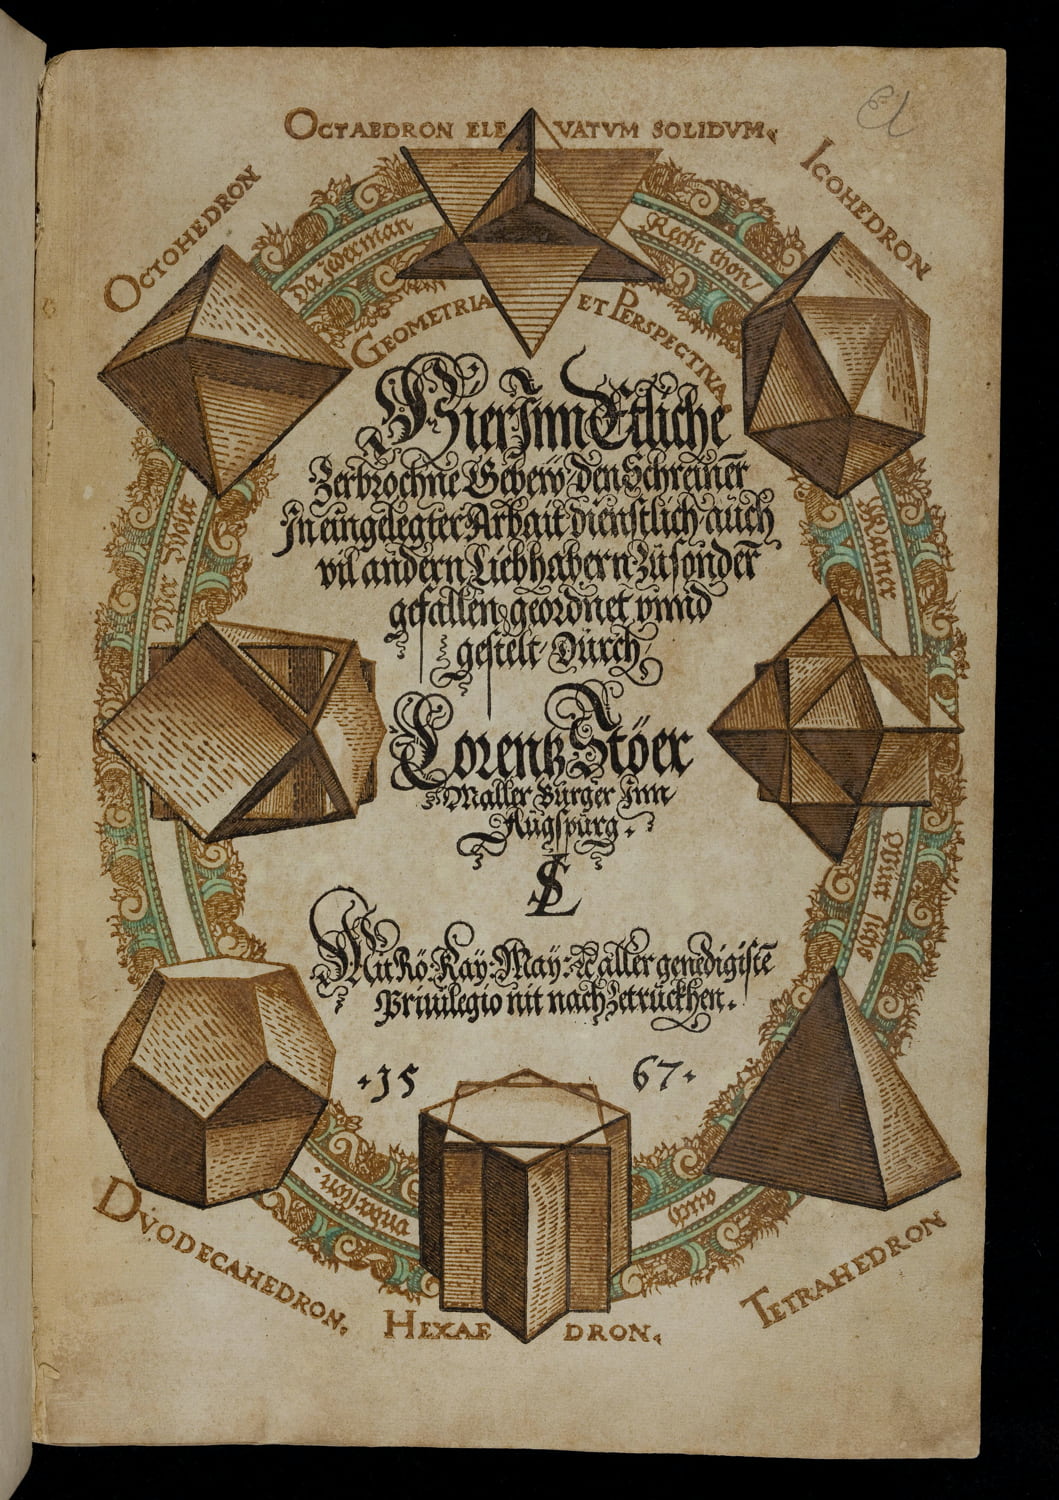 OCTAEDRON ELEVATVM SOLIDVM.
OCTOHEDRON
ICOHEDRON
Wer Jedexman
Recht thon
GEOMETRIA ET PERSPECTIVA
Hier Inn Etliche
Zerbrochne Gebew, den Schreiner
In eingelegter Arbait dienstlich, auch
vil andern Liebhabern Zu sonder
gefallen geordnet vnnd
gestelt, Durch
Lorentz Stöer
Maller Burger Inn
Augspurg.
LS
Mit Rö: Kay: May: aller genedigistē
Priuilegio nit nach Zetruckhen.
15 67
DVODECAHEDRON.
HEXAEDRON.
TETRAHEDRON